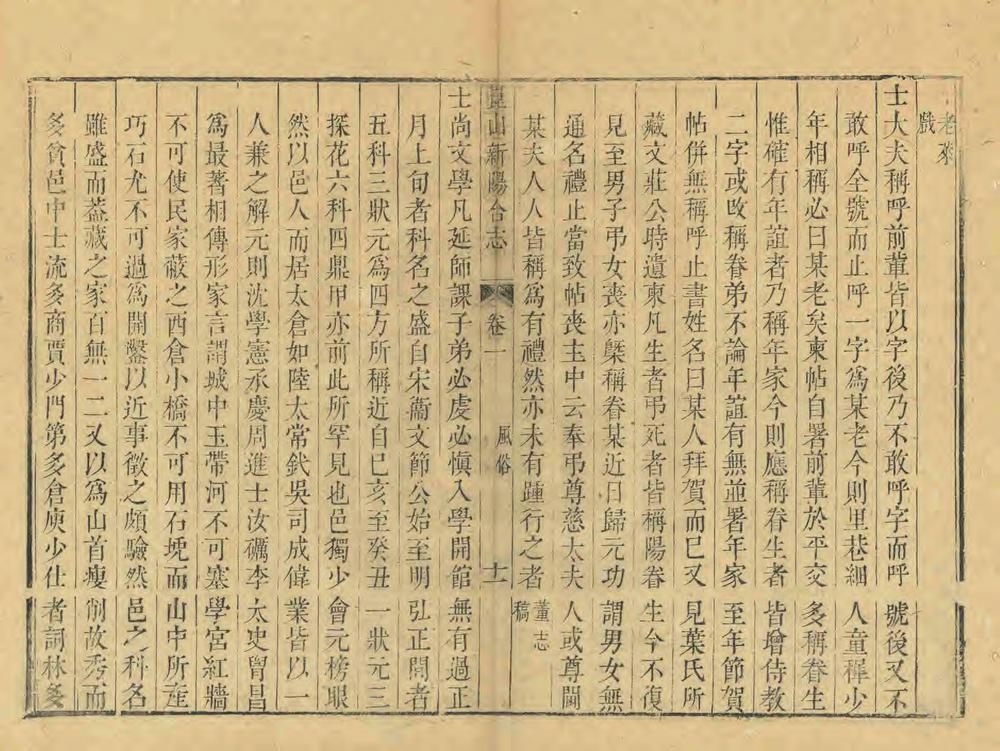 老來
戲
士大夫稱呼前輩皆以字後乃不敢呼字而呼號後又不
敢呼全號而止呼一字為某老今則里巷細人童穉少
年相稱必曰某老矣柬帖自署前輩於平交多稱眷生
惟確有年誼者乃稱年家今則應稱眷生者皆增侍教
二字或改稱眷弟不論年誼有無並署年家至年節賀
帖併無稱呼止書姓名曰某人拜賀而已又見葉氏所
藏文莊公時遺柬凡生者弔死者皆稱陽眷生今不復
見至男子弔女喪亦槩稱眷某近日歸元功謂男女無
通名禮止當致帖喪主中云奉弔尊慈太夫人或尊閫
某夫人人皆稱為有禮然亦未有踵行之者董志
稿
崑山新陽合志 卷一 風俗 十一
士尚文學凡延師課子弟必虔必慎入學開館無有過正
月上旬者科名之盛自宋衞文節公始至明弘正間者
五科三狀元為四方所稱近自己亥至癸丑一狀元三
探花六科四鼎甲亦前此所罕見也邑獨少會元榜眼
然以邑人而居太倉如陸太常釴吳司成偉業皆以一
人兼之解元則沈學憲承慶周進士汝礪李太史冑昌
為最著相傳形家言謂城中玉帶河不可塞學宮紅牆
不可使民家蔽之西倉小橋不可用石堍而山中所產
巧石尤不可過為開鑿以近事徵之頗驗然邑之科名
雖盛而葢藏之家百無一二又以為山首瘦削故秀而
多貧邑中士流多商賈少門第多倉庾少仕者詞林多